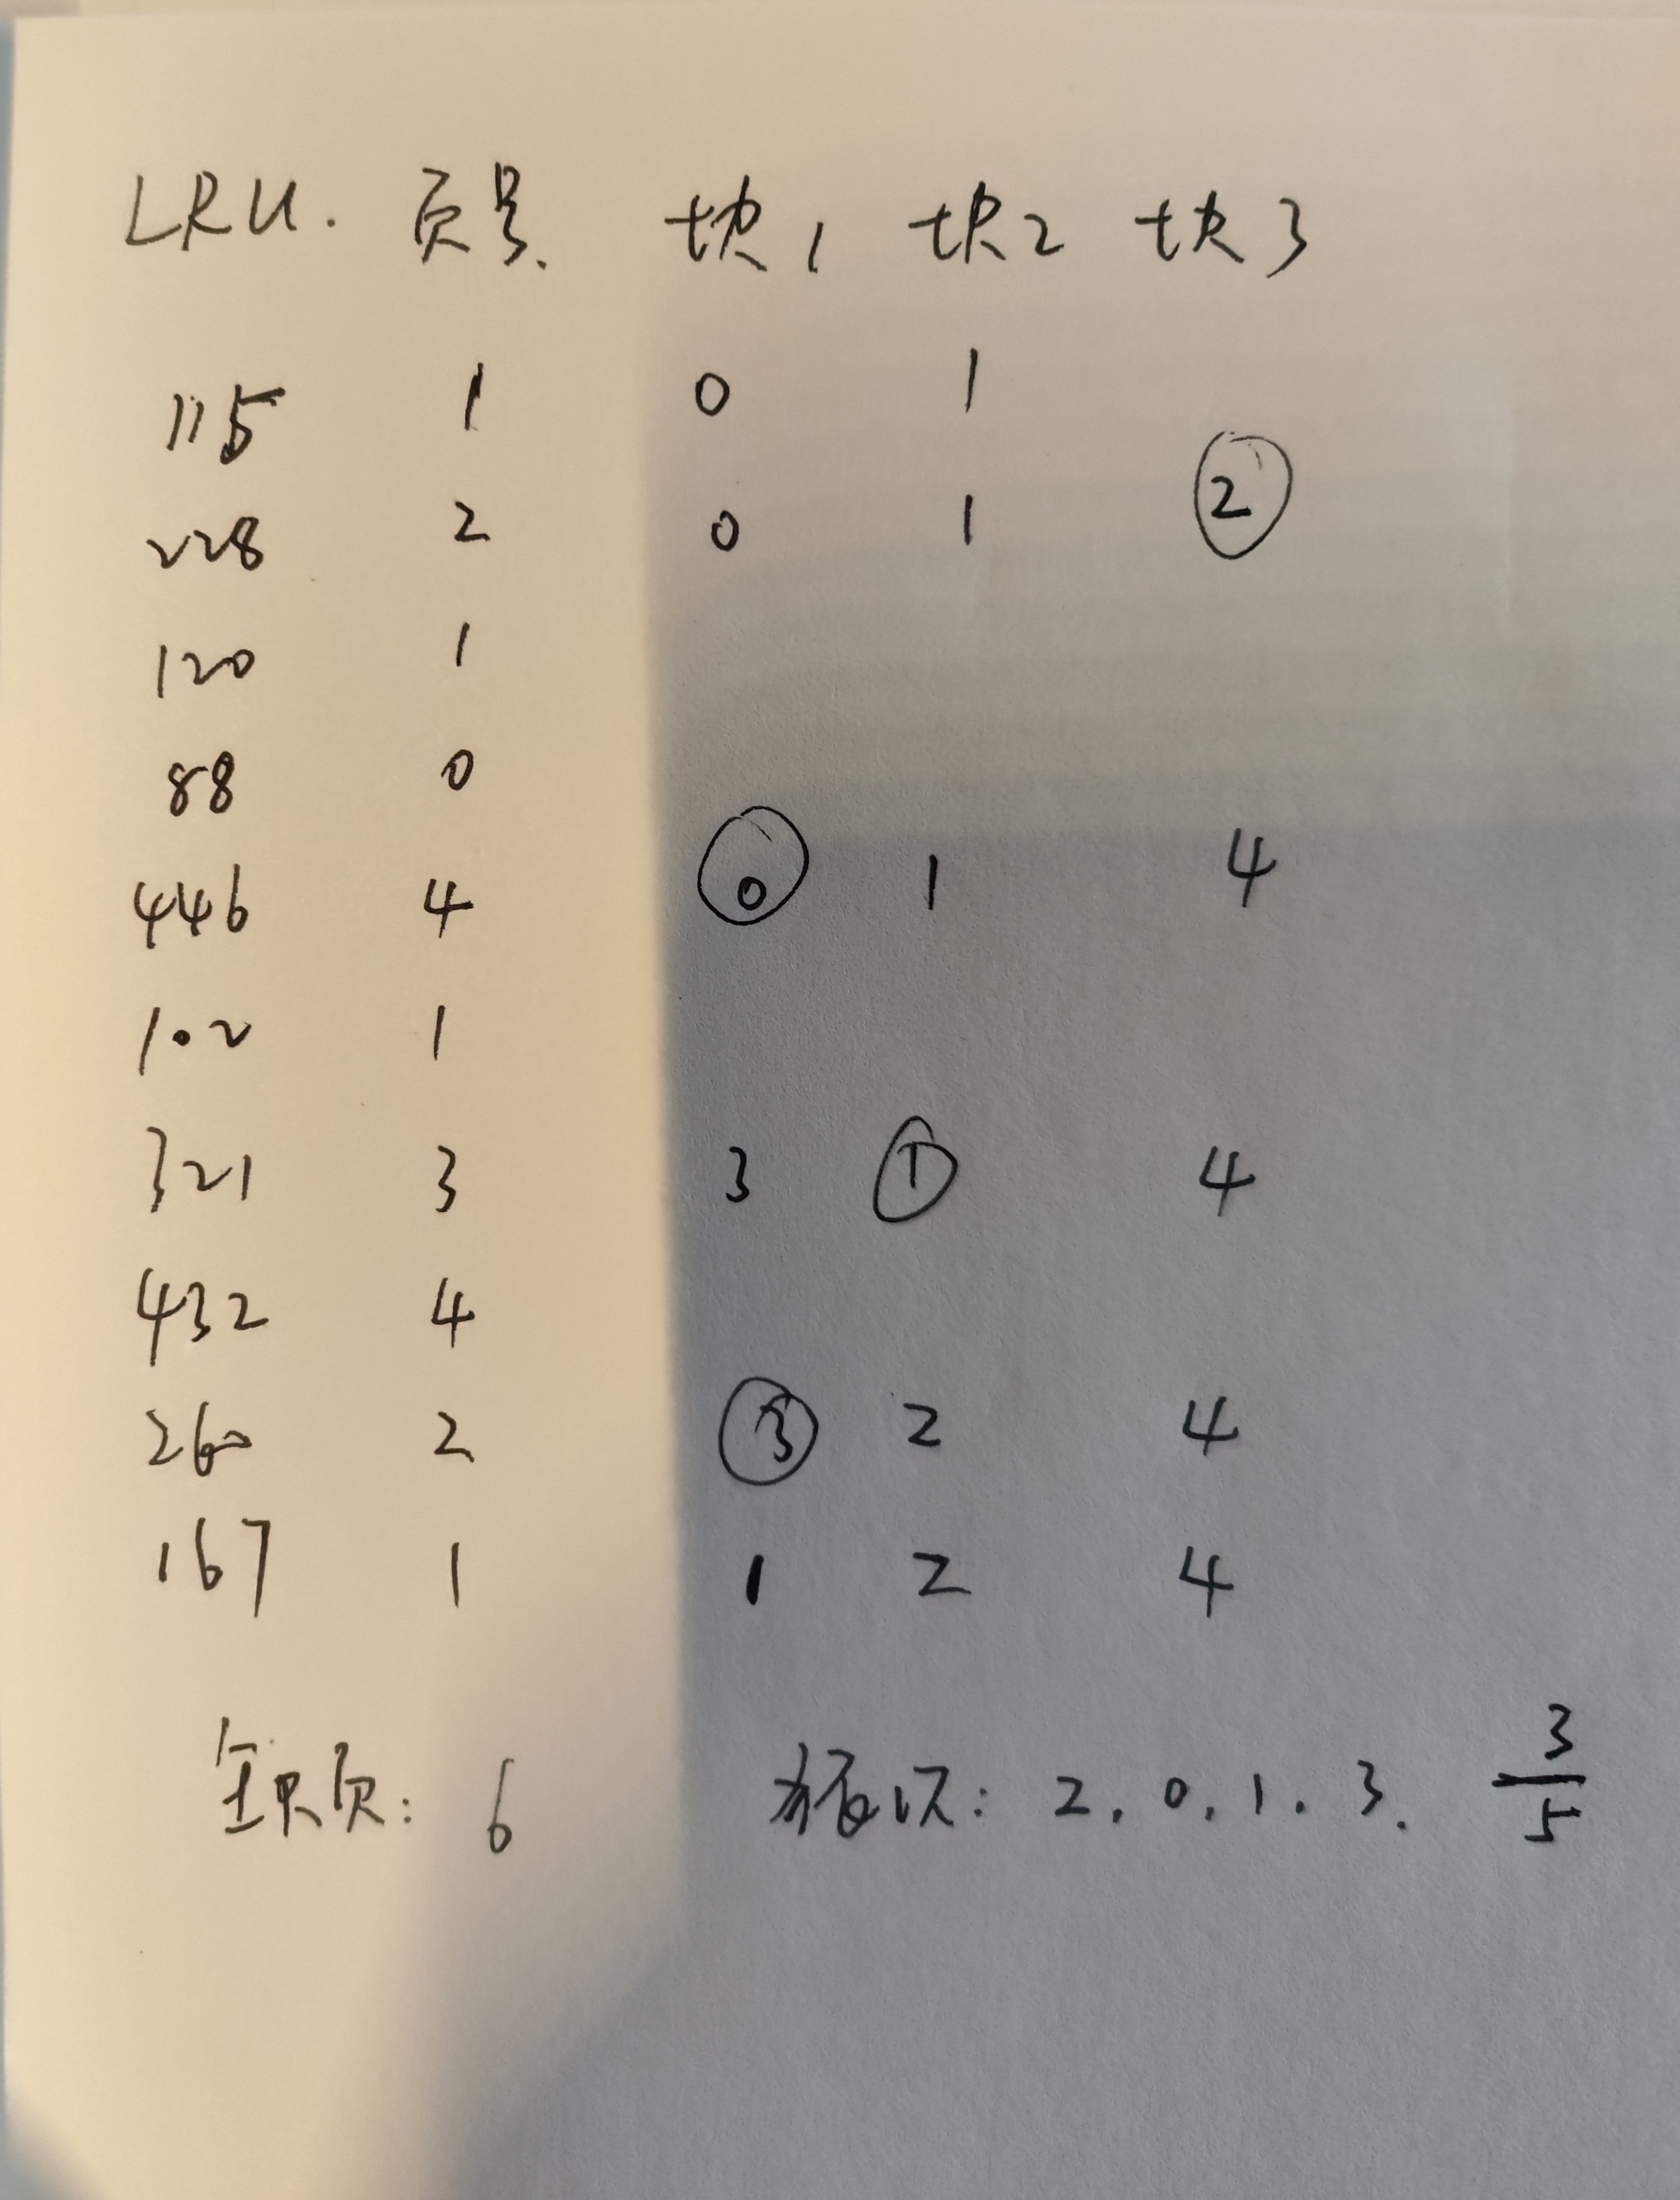 LRU. 页号. 块1 块2 块3
115 1 0 1
228 2 0 1 2
120 1
88 0
446 4 0 1 4
102 1
321 3 3 1 4
432 4
260 2 3 2 4
167 1 1 2 4
缺页: 6 2. 0. 1. 3. 3/5